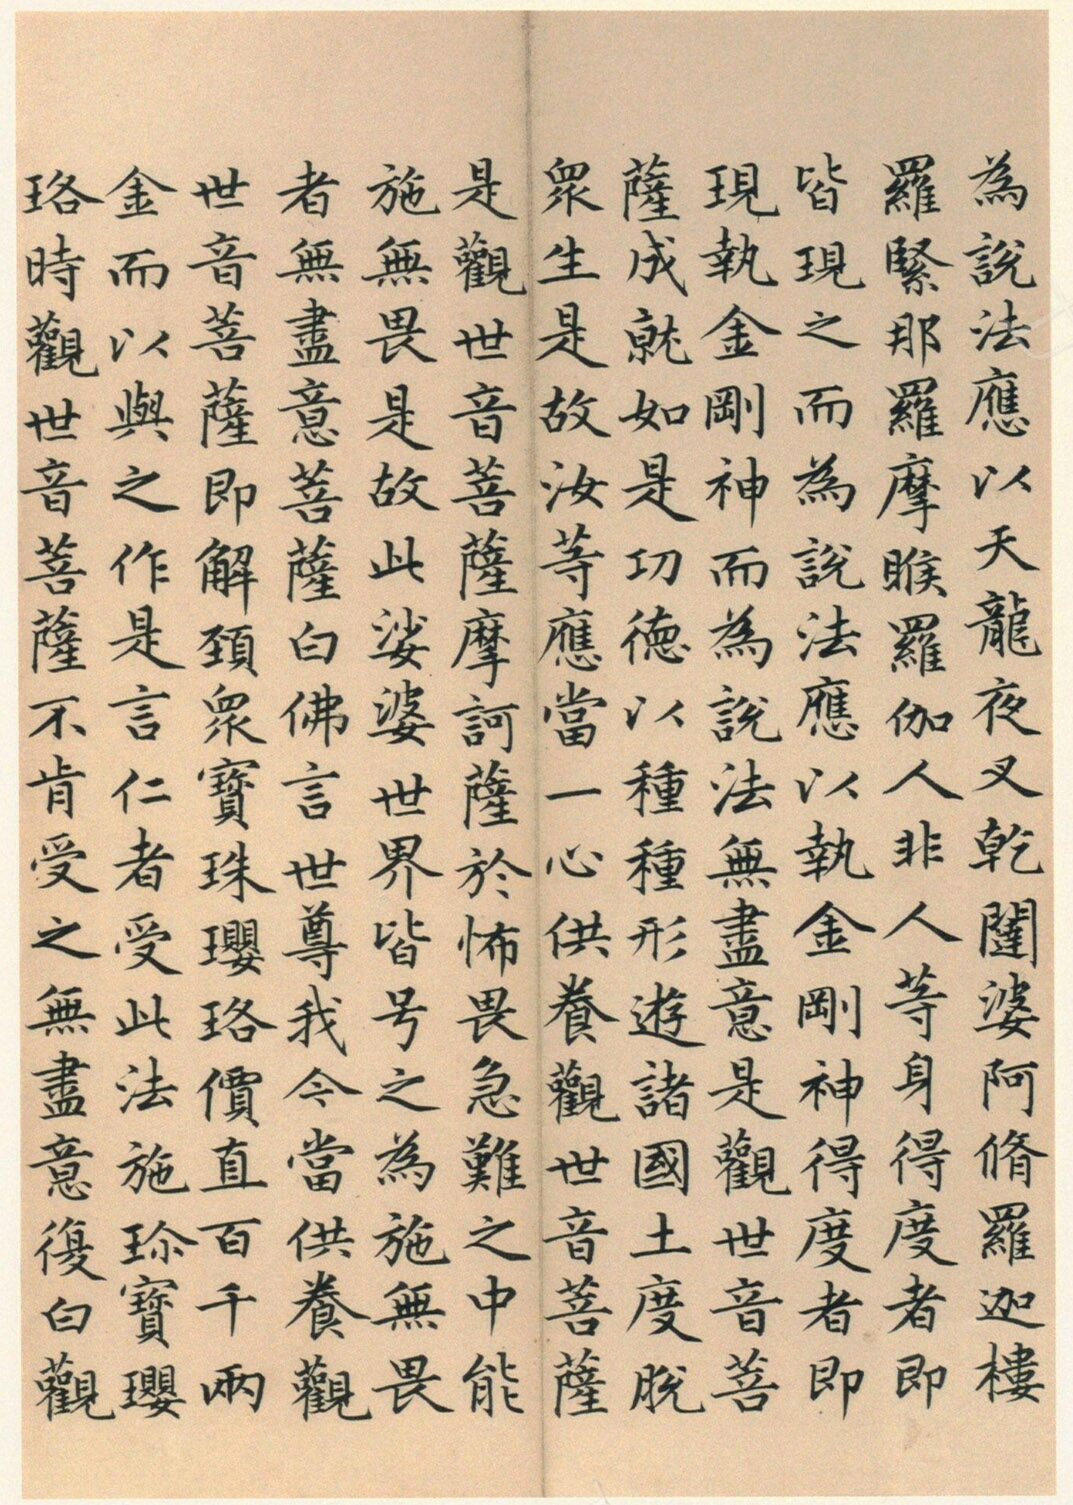 為說法應以天龍夜叉乾闥婆阿脩羅迦樓
羅緊那羅摩睺羅伽人非人等身得度者即
皆現之而為說法應以執金剛神得度者即
現執金剛神而為說法無盡意是觀世音菩
薩成就如是功德以種種形遊諸國土度脫
眾生是故汝等應當一心供養觀世音菩薩
是觀世音菩薩摩訶薩於怖畏急難之中能
施無畏是故此娑婆世界皆号之為施無畏
者無盡意菩薩白佛言世尊我今當供養觀
世音菩薩即解頸眾寶珠瓔珞價直百千兩
金而以與之作是言仁者受此法施珎寶瓔
珞時觀世音菩薩不肯受之無盡意復白觀